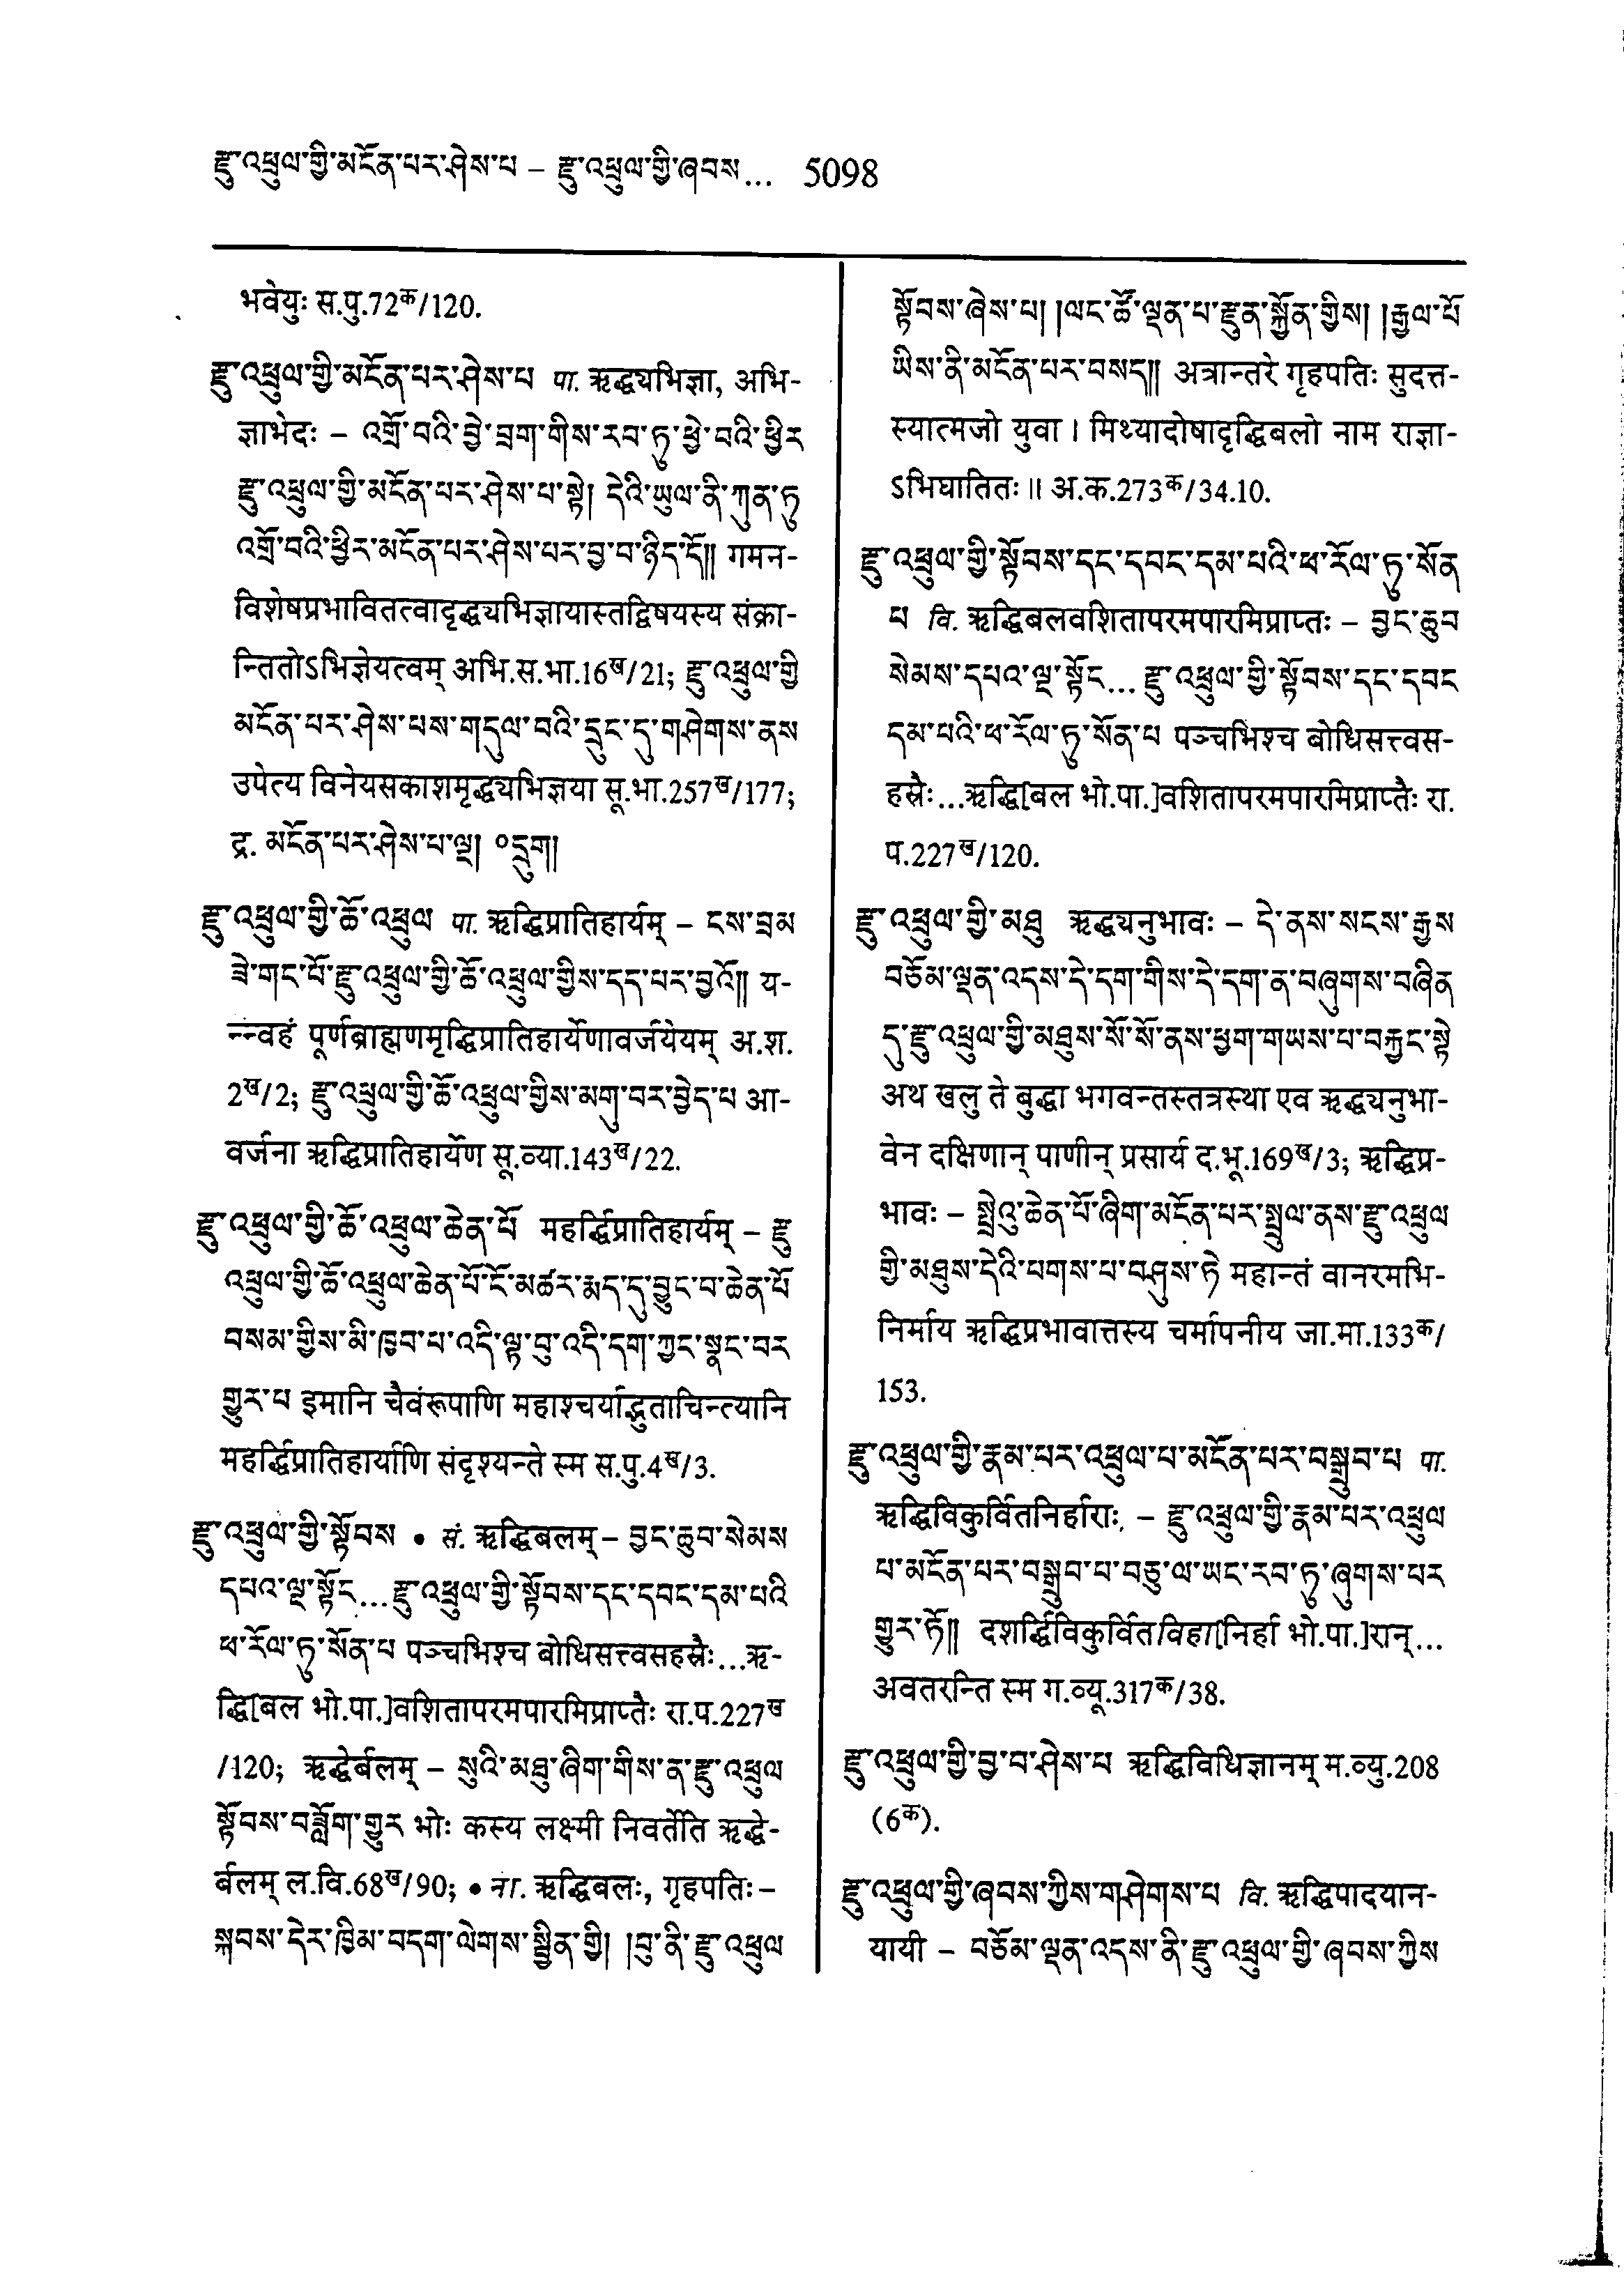 རྫུ་འཕྲུལ་གྱི་མངོན་པར་ཤེས་པ – རྫུ་འཕྲུལ་གྱི་ཞབས... 5098
भवेयुः स.पु.72क/120.
རྫུ་འཕྲུལ་གྱི་མངོན་པར་ཤེས་པ पा. ऋद्ध्यभिज्ञा, अभि-
ज्ञाभेदः – འགྲོ་བའི་བྱེ་བྲག་གིས་རབ་ཏུ་ཕྱེ་བའི་ཕྱིར
རྫུ་འཕྲུལ་གྱི་མངོན་པར་ཤེས་པ་སྟེ། དེའི་ཡུལ་ནི་ཀུན་ཏུ
འགྲོ་བའི་ཕྱིར་མངོན་པར་ཤེས་པར་བྱ་བ་ཉིད་དོ།། गमन-
विशेषप्रभावितत्वादृद्ध्यभिज्ञायास्तद्विषयस्य संक्रा-
न्तितोऽभिज्ञेयत्वम् अभि.स.भा.16ख/21; རྫུ་འཕྲུལ་གྱི
མངོན་པར་ཤེས་པས་གདུལ་བའི་དྲུང་དུ་གཤེགས་ནས
उपेत्य विनेयसकाशमृद्ध्यभिज्ञया सू.भा.257ख/177;
द्र. མངོན་པར་ཤེས་པ་ལྔ། ०དྲུག།
རྫུ་འཕྲུལ་གྱི་ཆོ་འཕྲུལ पा. ऋद्धिप्रातिहार्यम् – ངས་བྲམ
ཟེ་གང་པོ་རྫུ་འཕྲུལ་གྱི་ཆོ་འཕྲུལ་གྱིས་དད་པར་བྱའོ།། य-
न्न्वहं पूर्णब्राह्मणमृद्धिप्रातिहार्येणावर्जयेयम् अ.श.
2ख/2; རྫུ་འཕྲུལ་གྱི་ཆོ་འཕྲུལ་གྱིས་མགུ་བར་བྱེད་པ आ-
वर्जना ऋद्धिप्रातिहार्येण सू.व्या.143ख/22.
རྫུ་འཕྲུལ་གྱི་ཆོ་འཕྲུལ་ཆེན་པོ महर्द्धिप्रातिहार्यम् – རྫུ
འཕྲུལ་གྱི་ཆོ་འཕྲུལ་ཆེན་པོ་ངོ་མཚར་རྨད་དུ་བྱུང་བ་ཆེན་པོ
བསམ་གྱིས་མི་ཁྱབ་པ་འདི་ལྟ་བུ་འདི་དག་ཀྱང་སྣང་བར
གྱུར་པ इमानि चैवंरूपाणि महाश्चर्याद्भुताचिन्त्यानि
महर्द्धिप्रातिहार्याणि संदृश्यन्ते स्म स.पु.4ख/3.
རྫུ་འཕྲུལ་གྱི་སྟོབས • सं. ऋद्धिबलम् – བྱང་ཆུབ་སེམས
དཔའ་ལྔ་སྟོང...རྫུ་འཕྲུལ་གྱི་སྟོབས་དང་དབང་དམ་པའི
ཕ་རོལ་ཏུ་སོན་པ पञ्चभिश्च बोधिसत्त्वसहस्रैः...ऋ-
द्धि[बल भो.पा.]वशितापरमपारमिप्राप्तैः रा.प.227ख
/120; ऋद्धेर्बलम् – སུའི་མཐུ་ཞིག་གིས་ན་རྫུ་འཕྲུལ
སྟོབས་བཟློག་གྱུར भोः कस्य लक्ष्मी निवर्तेति ऋद्धे-
र्बलम् ल.वि.68ख/90; • ना. ऋद्धिबलः, गृहपतिः –
སྐབས་དེར་ཁྱིམ་བདག་ལེགས་སྦྱིན་གྱི། །བུ་ནི་རྫུ་འཕྲུལ
སྟོབས་ཞེས་པ། །ལང་ཚོ་ལྡན་པ་རྫུན་སྐྱོན་གྱིས། །རྒྱལ་པོ
ཡིས་ནི་མངོན་པར་བསད།། अत्रान्तरे गृहपतिः सुदत्त-
स्यात्मजो युवा । मिथ्यादोषादृद्धिबलो नाम राज्ञा-
ऽभिघातितः ॥ अ.क.273क/34.10.
རྫུ་འཕྲུལ་གྱི་སྟོབས་དང་དབང་དམ་པའི་ཕ་རོལ་ཏུ་སོན
པ वि. ऋद्धिबलवशितापरमपारमिप्राप्तः – བྱང་ཆུབ
སེམས་དཔའ་ལྔ་སྟོང... རྫུ་འཕྲུལ་གྱི་སྟོབས་དང་དབང
དམ་པའི་ཕ་རོལ་ཏུ་སོན་པ पञ्चभिश्च बोधिसत्त्वस-
हस्रैः...ऋद्धि[बल भो.पा.]वशितापरमपारमिप्राप्तैः रा.
प.227ख/120.
རྫུ་འཕྲུལ་གྱི་མཐུ ऋद्ध्यनुभावः – དེ་ནས་སངས་རྒྱས
བཅོམ་ལྡན་འདས་དེ་དག་གིས་དེ་དག་ན་བཞུགས་བཞིན
དུ་རྫུ་འཕྲུལ་གྱི་མཐུས་སོ་སོ་ནས་ཕྱག་གཡས་པ་བརྐྱང་སྟེ
अथ खलु ते बुद्धा भगवन्तस्तत्रस्था एव ऋद्ध्यनुभा-
वेन दक्षिणान् पाणीन् प्रसार्य द.भू.169ख/3; ऋद्धिप्र-
भावः – སྤྲེའུ་ཆེན་པོ་ཞིག་མངོན་པར་སྤྲུལ་ནས་རྫུ་འཕྲུལ
གྱི་མཐུས་དེའི་པགས་པ་བཤུས་ཏེ महान्तं वानरमभि-
निर्माय ऋद्धिप्रभावात्तस्य चर्मापनीय जा.मा.133क/
153.
རྫུ་འཕྲུལ་གྱི་རྣམ་པར་འཕྲུལ་པ་མངོན་པར་བསྒྲུབ་པ पा.
ऋद्धिविकुर्वितनिर्हाराः – རྫུ་འཕྲུལ་གྱི་རྣམ་པར་འཕྲུལ
པ་མངོན་པར་བསྒྲུབ་པ་བཅུ་ལ་ཡང་རབ་ཏུ་ཞུགས་པར
གྱུར་ཏོ།། दशर्द्धिविकुर्वितविहा[निर्हा भो.पा.]रान्...
अवतरन्ति स्म ग.व्यू.317क/38.
རྫུ་འཕྲུལ་གྱི་བྱ་བ་ཤེས་པ ऋद्धिविधिज्ञानम् म.व्यु.208
(6क).
རྫུ་འཕྲུལ་གྱི་ཞབས་ཀྱིས་གཤེགས་པ वि. ऋद्धिपादयान-
यायी – བཅོམ་ལྡན་འདས་ནི་རྫུ་འཕྲུལ་གྱི་ཞབས་ཀྱིས